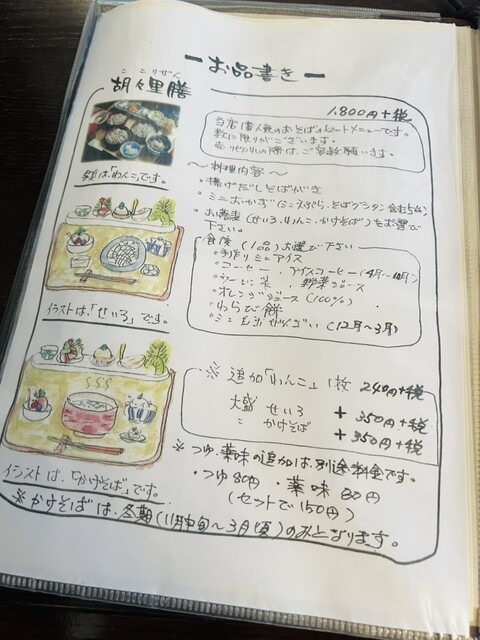 ーお品書きー
こころぜん
胡々里膳
1,800円+税
当店1番人気のおそばのセットメニューです。
数に限りがございます。
売り切れの際は、ご容赦願います。
写真は「わんこ」です。
〜料理内容〜
・揚げだしそばがき
・ミニおかず(ミニ天ぷら、そばグラタン含む5品)
・お蕎麦(せいろ、わんこ、かけそば)をお選び
下さい。
イラストは、「せいろ」です。
食後(1品)お選び下さい
・手作りミニアイス
・コーヒー アイスコーヒー(4月〜10月)
・ウーロン茶 野菜ジュース
・オレンジジュース(100%)
・わらび餅
・ミニぜんざい(12月〜3月)
※追加「わんこ」1枚 240円+税
大盛 せいろ +350円+税
〃 かけそば +350円+税
イラストは、「かけそば」です。
※つゆ、薬味の追加は、別途料金です。
・つゆ80円 ・薬味80円
(セットで150円)
※かけそばは、冬期(11月中旬〜3月頃)のみとなります。